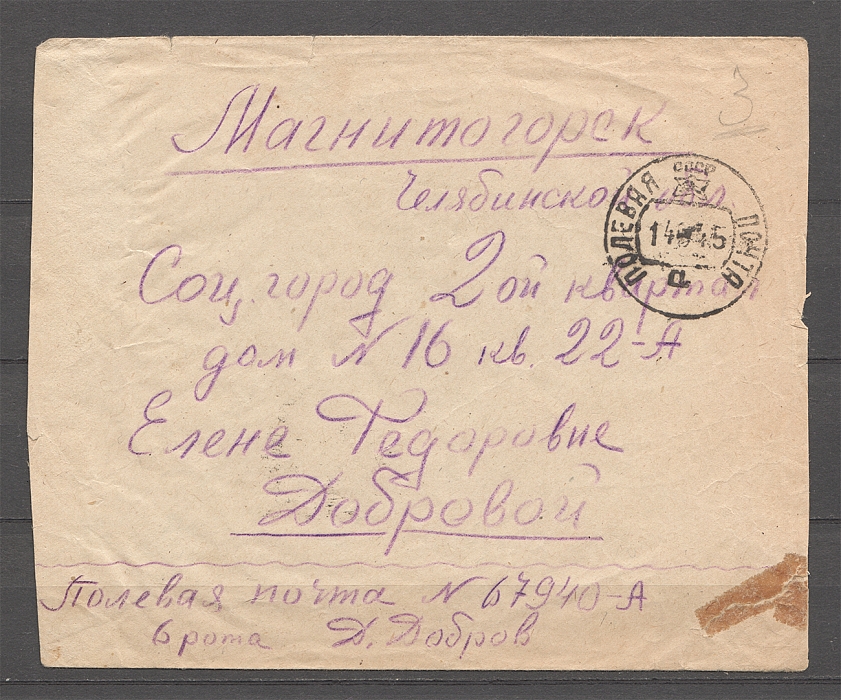 3
Магнитогорск
Челябинской обл.
Соц. город 2ой квартал
дом N 16 кв. 22-А
Елене Федоровне
Добровой
Полевая почта N 67940-А
6 рота Д. Добров
ПОЛЕВАЯ ПОЧТА
СССР